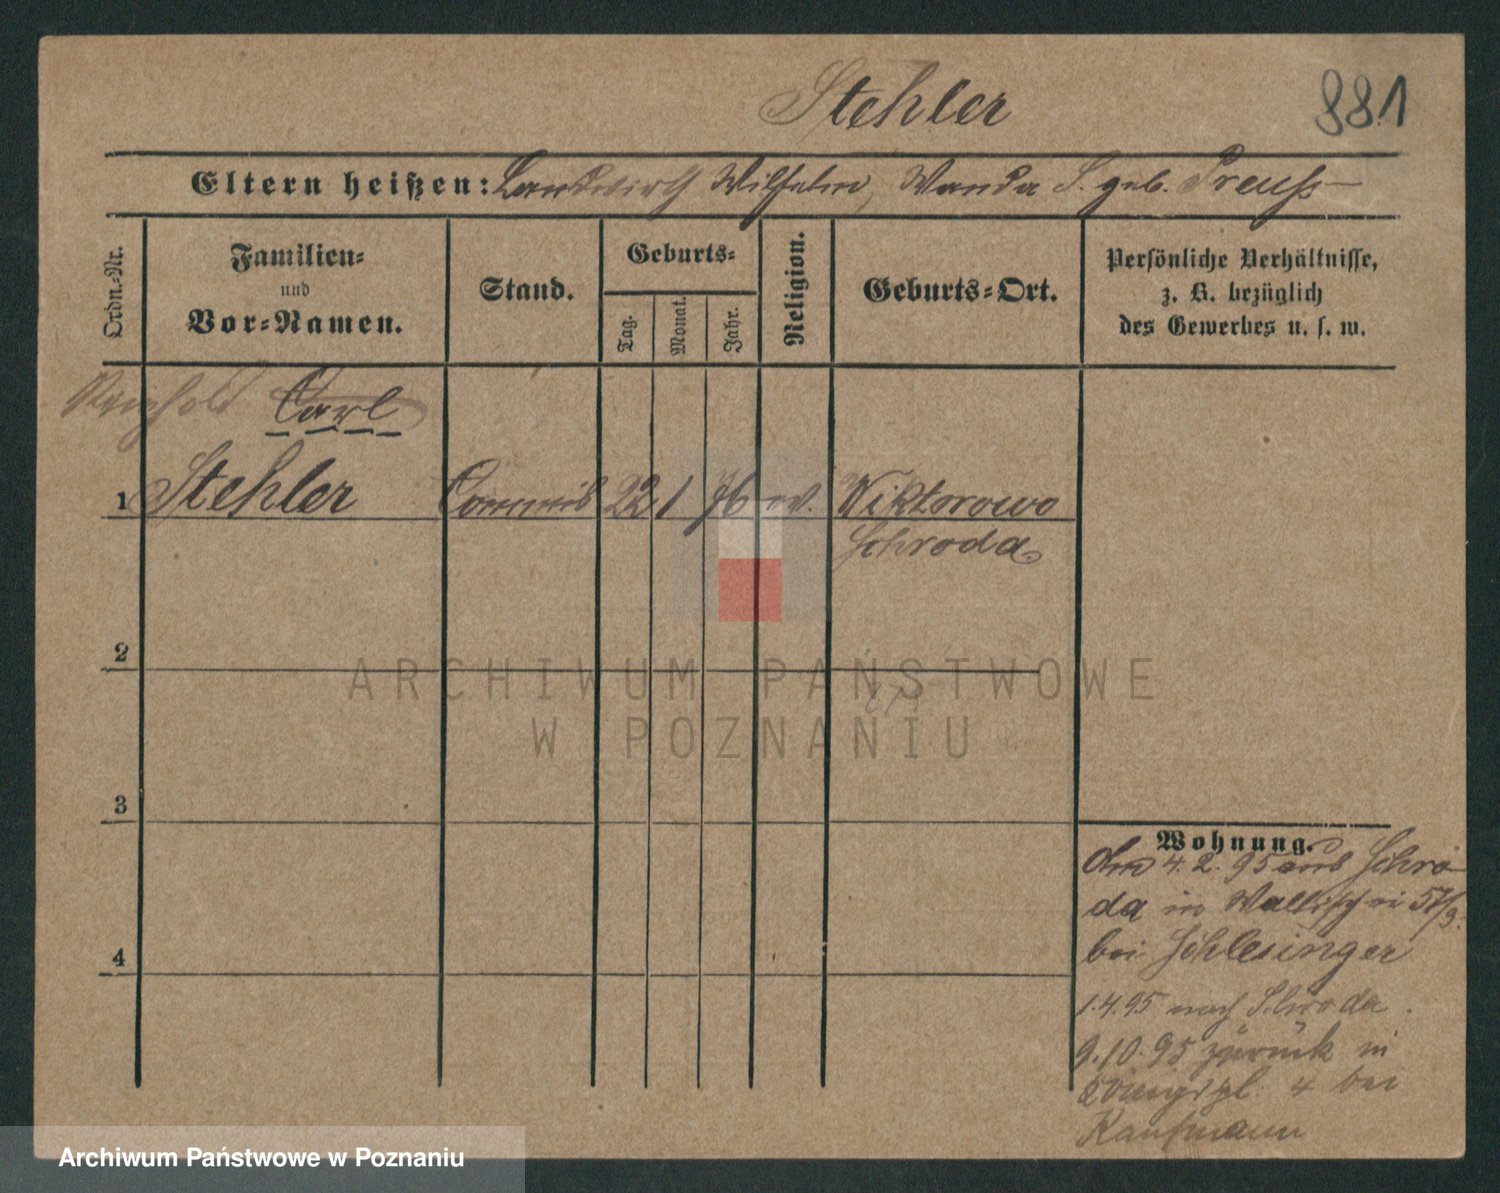 Stehler
881
Eltern heißen: Landwirth Wilhelm, Wanda S. geb. Preuß
Ordn.-Nr.
Familien-
und
Vor-Namen.
Stand.
Geburts-
Tag.
Monat.
Jahr.
Religion.
Geburts-Ort.
Persönliche Verhältnisse,
z. B. bezüglich
des Gewerbes u. s. w.
Reinhold Carl
1 Stehler Commis 22 1 76 ev. Wiktorowo
Schroda
2
3
4
Wohnung.
Am 4. 2. 95 aus Schro
da in Wallischei 57/9.
bei Schlesinger
1.4.95 nach Schroda.
9.10.95 zurück in
4 bei
Kaufmann
ARCHIWUM PAŃSTWOWE
W POZNANIU
Archiwum Państwowe w Poznaniu